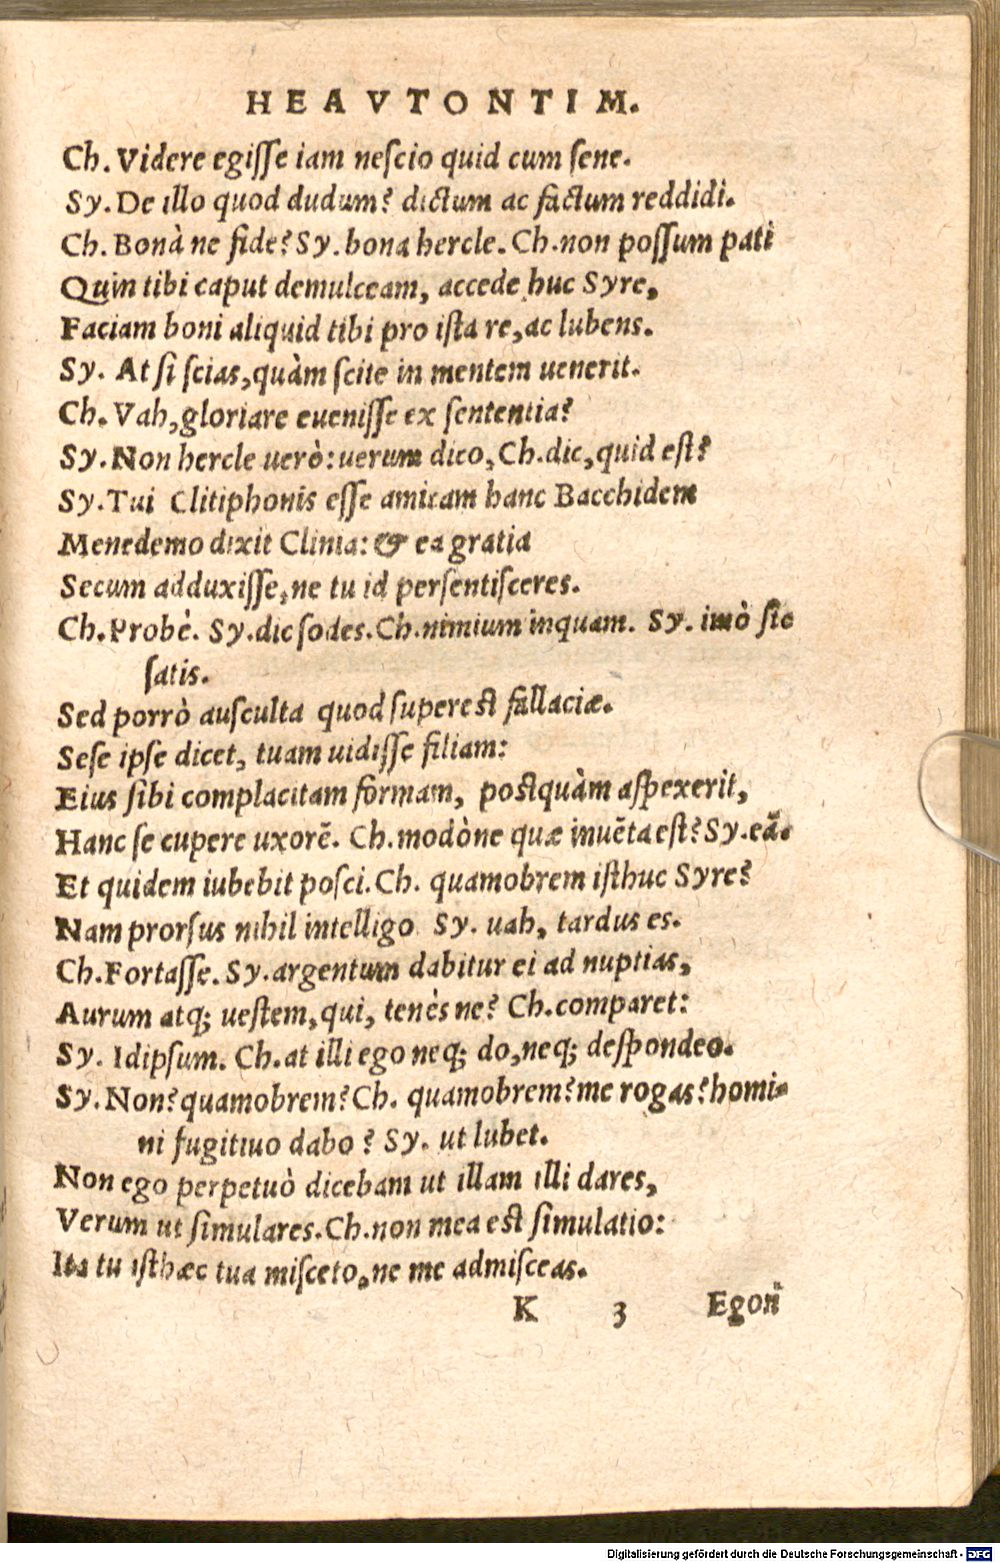 HEAVTONTIM.
Ch. Videre egiſſe iam neſcio quid cum ſene.
Sy. De illo quod dudum? dictum ac factum reddidi.
Ch. Bonà ne fide? Sy. bona hercle. Ch. non poſſum pati
Quin tibi caput demulceam, accede huc Syre,
Faciam boni aliquid tibi pro iſta re, ac lubens.
Sy. At ſi ſcias, quàm ſcite in mentem uenerit.
Ch. Vah, gloriare eueniſſe ex ſententia?
Sy. Non hercle uerò: uerum dico, Ch. dic, quid eſt?
Sy. Tui Clitiphonis eſſe amicam hanc Bacchidem
Menedemo dixit Clinia: & ea gratia
Secum adduxiſſe, ne tu id perſentiſceres.
Ch. Probè. Sy. dic ſodes. Ch. nimium inquam. Sy. imò ſic
ſatis.
Sed porrò auſculta quod ſupereſt fallaciæ.
Seſe ipſe dicet, tuam uidiſſe filiam:
Eius ſibi complacitam formam, poſtquàm aſpexerit,
Hanc ſe cupere uxorē. Ch. modòne quæ inuēta eſt? Sy. eā.
Et quidem iubebit poſci. Ch. quamobrem iſthuc Syre?
Nam prorſus nihil intelligo Sy. uah, tardus es.
Ch. Fortaſſe. Sy. argentum dabitur ei ad nuptias,
Aurum atq; ueſtem, qui, tenès ne? Ch. comparet:
Sy. Idipſum. Ch. at illi ego neq; do, neq; deſpondeo.
Sy. Non? quamobrem? Ch. quamobrem? me rogas? homi-
ni fugitiuo dabo? Sy. ut lubet.
Non ego perpetuò dicebam ut illam illi dares,
Verum ut ſimulares. Ch. non mea eſt ſimulatio:
Ita tu iſthæc tua miſceto, ne me admiſceas.
K 3 Egon
Digitalisierung gefördert durch die Deutsche Forschungsgemeinschaft - DFG